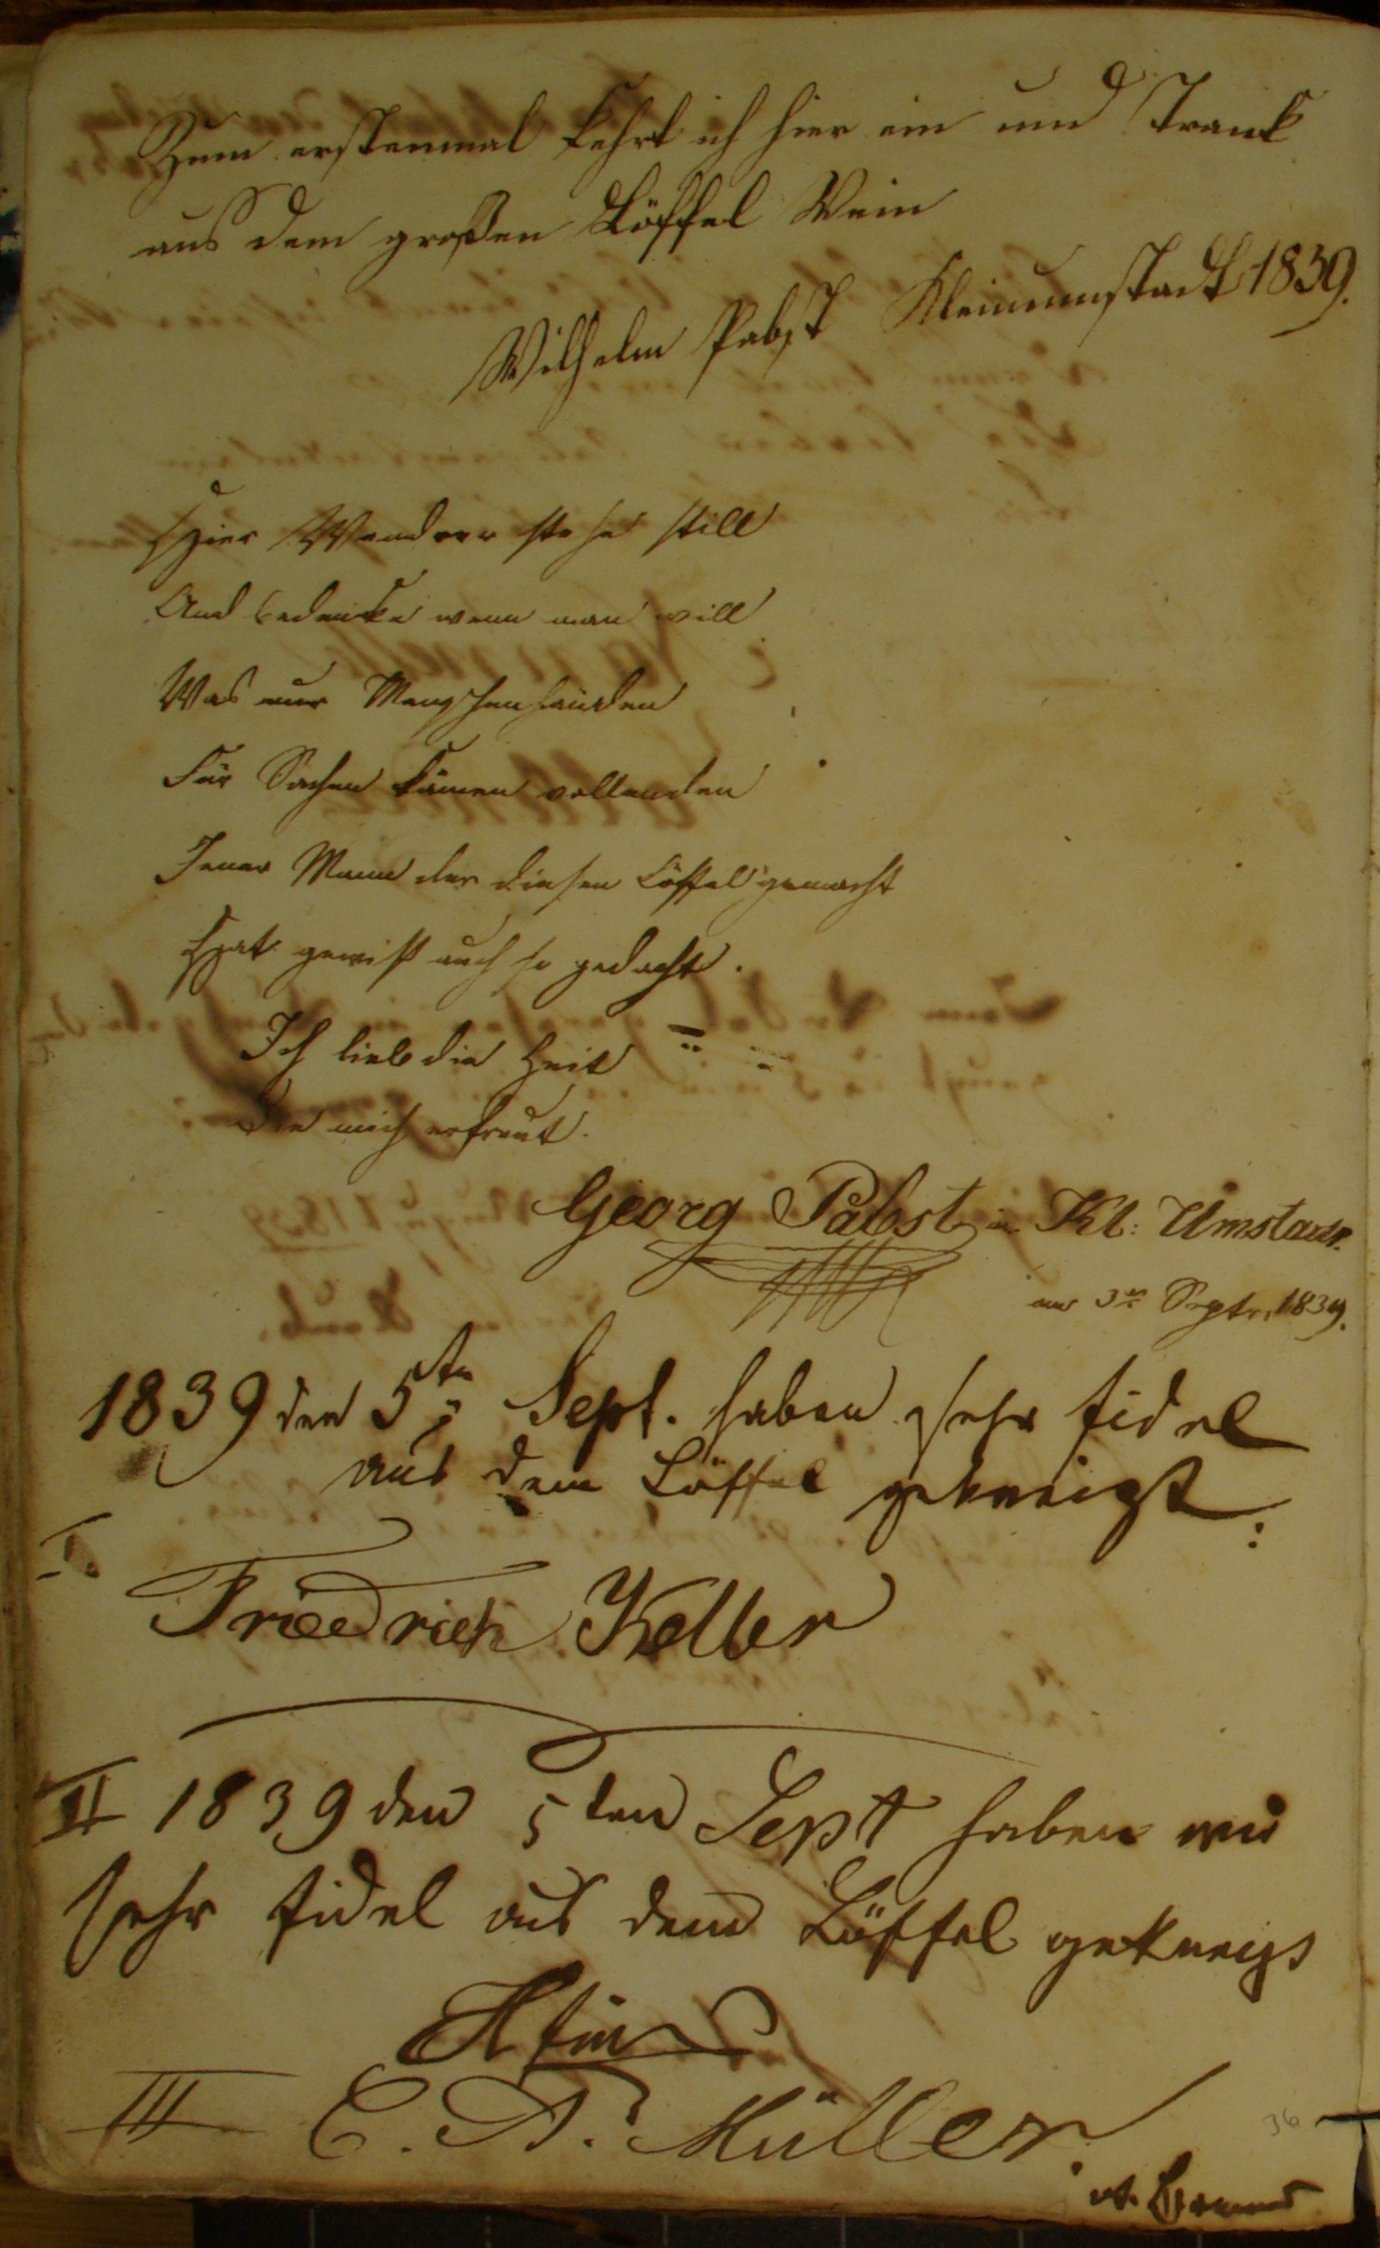 Zum erstenmal kehrt ich hier ein und Trank
aus dem großen Löffel Wein
Wilhelm Pabst Kleinumstadt 1839.
Hier Wandrer stehe still
Und bedenke wenn man will
Was nur Menschenhänden
Für Sachen könen vollenden
Jener Mann der diesen Löffel gemacht
Hat gewiß auch so gedacht.
Ich lieb die
Die mich erfreut.
Georg Pabst in Kl: Umstadt.
am 3ten Septr. 1839.
1839 den 5ten Sept. haben sehr fidel
aus dem Löffel gekneipt:
I.
Friedrich Keller
II 1839 den 5ten Sept haben wir
sehr fidel aus dem Löffel gekneipt
III C. Müller.
36